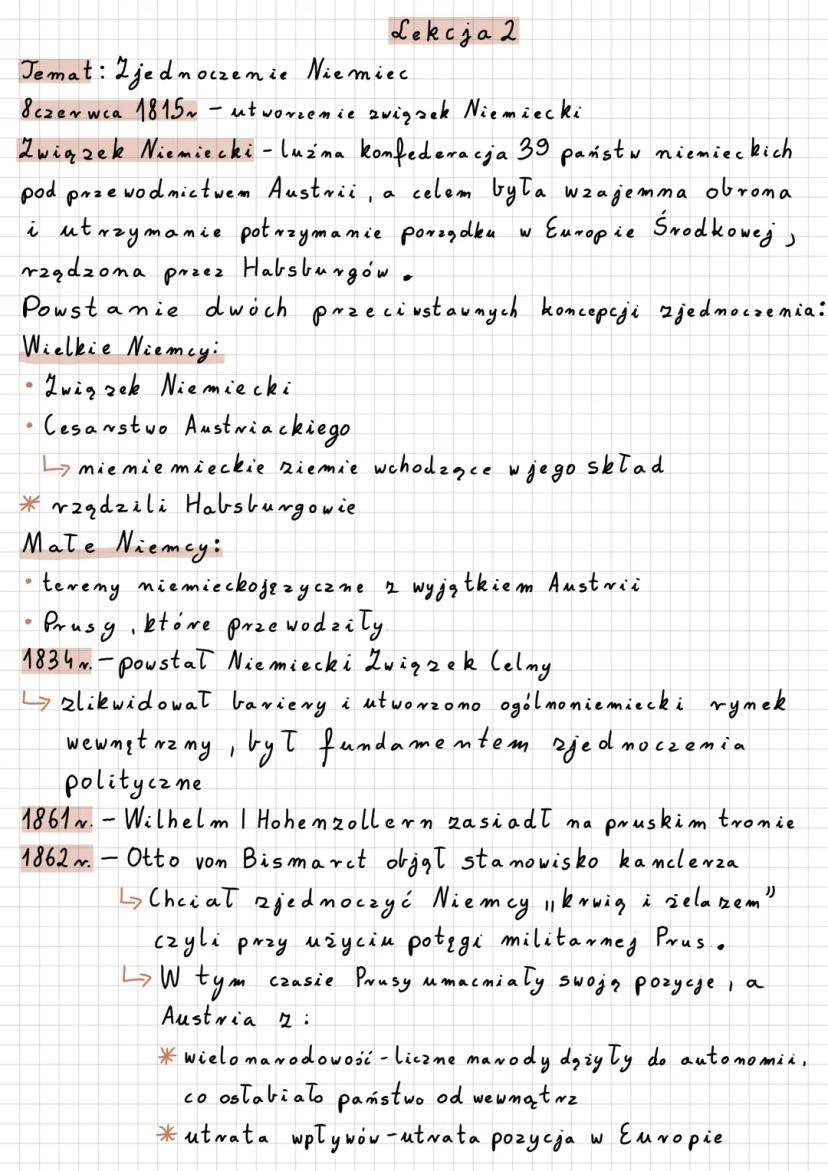 Lekcja 2
Temat: Zjednoczenie Niemiec
8 czerwca 1815r - utworzenie związek Niemiecki
Związek Niemiecki - luźna konfederacja 39 państw niemieckich
pod przewodnictwem Austrii, a celem była wzajemna obrona
i utrzymanie potrzymanie porządku w Europie Środkowej,
rządzona przez Habsburgów.
Powstanie dwóch przeciwstawnych koncepcji zjednoczenia:
Wielkie Niemcy:
• Związek Niemiecki
• Cesarstwo Austriackiego
↳ niemiemieckie ziemie wchodzące w jego skład
* rządzili Habsburgowie
Małe Niemcy:
• tereny niemieckojęzyczne z wyjątkiem Austrii
• Prusy, które przewodziły
1834r. - powstał Niemiecki Związek Celny
↳ zlikwidował bariery i utworzono ogólnoniemiecki rynek
wewnętrzny, był fundamentem zjednoczenia
polityczne
1861r. - Wilhelm I Hohenzollern zasiadł na pruskim tronie
1862r. - Otto von Bismarct objął stanowisko kanclerza
↳ Chciał zjednoczyć Niemcy „krwią i żelazem”
czyli przy użyciu potęgi militarnej Prus.
↳ W tym czasie Prusy umacniały swoją pozycje, a
Austria z:
* wielonarodowość - liczne narody dążyły do autonomii,
co osłabiało państwo od wewnątrz
* utrata wpływów - utrata pozycja w Europie